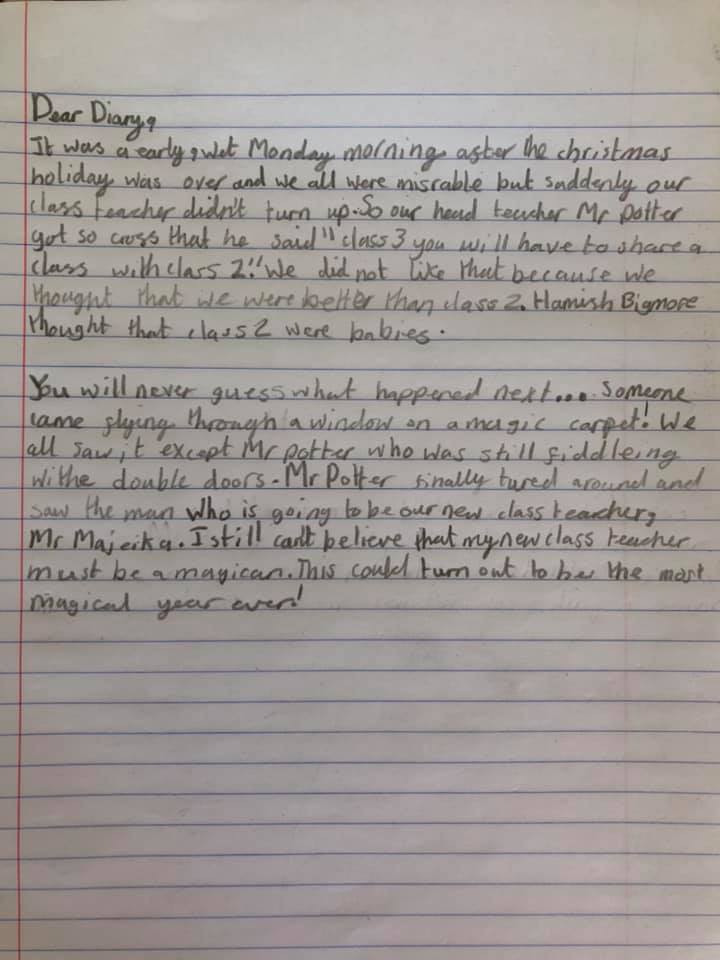 Dear Diary,
It was a early, wet Monday morning after the christmas
holiday was over and we all were misrable but suddenly our
class teacher didn't turn up. So our head teacher Mr Potter
got so cross that he said "class 3 you will have to share a
class with class 2!" We did not like that because we
thought that we were better than class 2. Hamish Bigmore
thought that class 2 were babies.
You will never guess what happened next... Someone
came flying through a window on a magic carpet! We
all saw it except Mr potter who was still fiddleing
withe double doors. Mr Potter finally tured around and
saw the man who is going to be our new class teacher,
Mr Majeika. I still can't believe that my new class teacher
must be a magican. This could turn out to be the most
magical year ever!